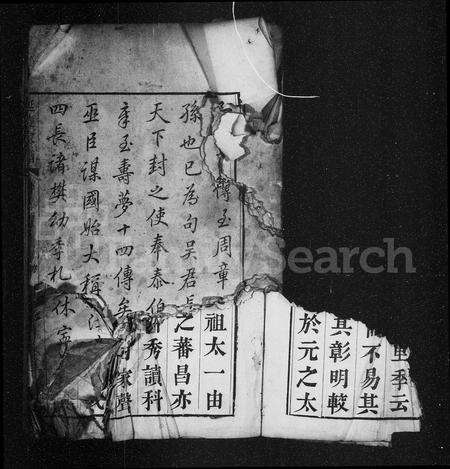 重季云
不易其
其彰明較
於元之太
祖太一由
傳至周章
孫也已為句吳君長之蕃昌亦
天下封之使奉泰伯 秀讀科
至壽夢十四傳矣 家聲
巫臣謀國始大稱
四長諸樊幼季札 休寧
FamilySearch